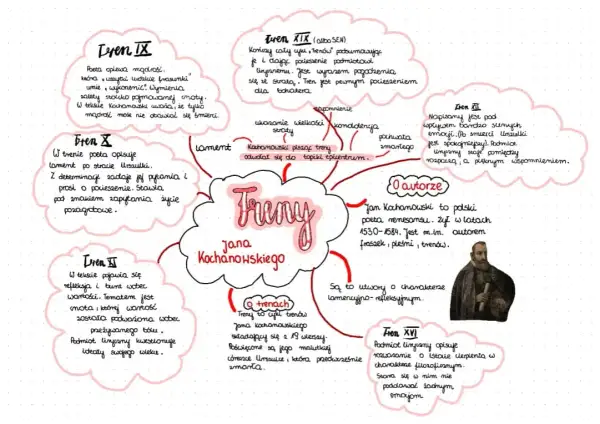 Tren IX
Poeta opiewa mądrość,
która „wszytki ludzkie frasunki"
umie „wykorzenić". Wymienia
zalety stoicko pojmowanej cnoty.
W tekście Kochanowski uważa, że tylko
mądrość może nie obawiać się śmierci.
Tren XIX (albo SEN)
Kończy cały cykl „Trenów" podsumowując
je i dając pocieszenie podmiotowi
lirycznemu. Jest wyrazem pogodzenia
się ze stratą. Tren jest pewnym pocieszeniem
dla bohatera.
Tren XII
Napisany jest pod
wpływem bardzo silnych
emocji. (Po śmierci Urszulki
jest spokojniejszy). Podmiot
liryczny stoi pomiędzy
rozpaczą, a pięknym wspomnieniem.
napomnienie
ukazanie wielkości straty
kondolencja
pochwała zmarłego
lament
Kochanowski pisząc treny
odwołał się do topiki epicedium.
Tren X
W trenie poeta opisuje
lament po stracie Urszulki.
Z determinacją zadaje jej pytania i
prosi o pocieszenie. Stawia
pod znakiem zapytania życie
pozagrobowe.
Treny
Jana
Kochanowskiego
O autorze
Jan Kochanowski to polski
poeta renesansu. Żył w latach
1530-1584. Jest m.in. autorem
fraszek, pieśni, trenów.
Tren XI
W tekście pojawia się
refleksja i bunt wobec
wartości. Tematem jest
cnota, której wartość
została podważona wobec
przeżywanego bólu.
Podmiot liryczny kwestionuje
ideały swojego wieku.
o trenach
Treny to cykl trenów
Jana Kochanowskiego
składający się z 19 wierszy.
Poświęcone są jego malutkiej
córeczce Urszulce, która przedwcześnie
zmarła.
Są to utwory o charakterze
lamentacyjno-refleksyjnym.
Tren XVI
Podmiot liryczny opisuje
rozważanie o istocie cierpienia w
charakterze filozoficznym.
Stara się w nim nie
poddawać żadnym
emocjom.